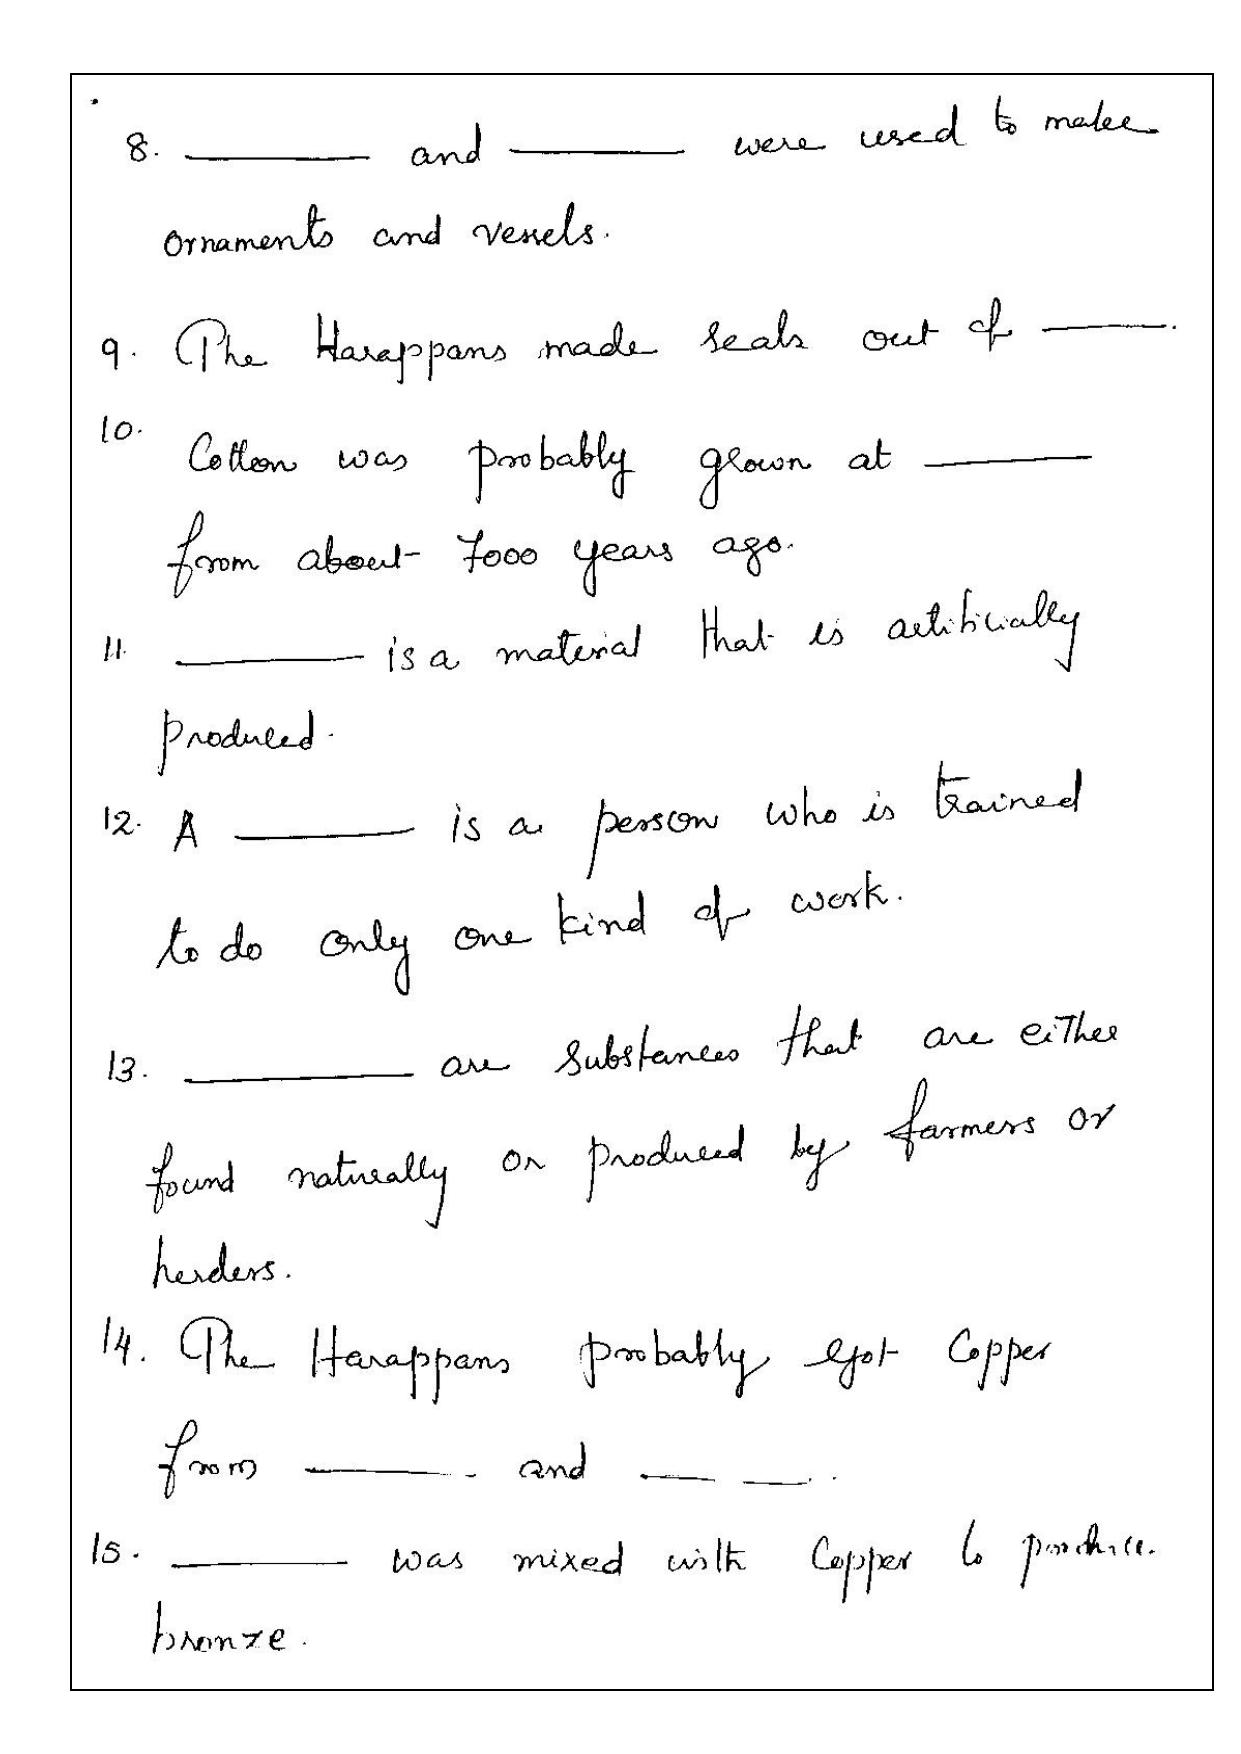 8. ________ and ________ were used to make
ornaments and vessels.
9. The Harappans made seals out of ______.
10. Cotton was probably grown at ________
from about 7000 years ago.
11. ________ is a material that is artificially
produced.
12. A ________ is a person who is trained
to do only one kind of work.
13. ________ are substances that are either
found naturally or produced by farmers or
herders.
14. The Harappans probably got Copper
from ________ and ________.
15. ________ was mixed with Copper to produce
bronze.